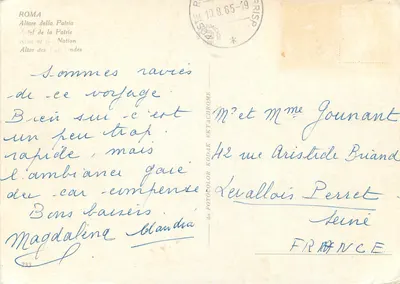 ROMA
Altare della Patria
de la Patrie
Nation
Altar des
12.8.65-19
Sommes ravies
de ce voyage.
Bien sûr c'est
un peu trop
rapide, mais
l'ambiance gaie
du car compense
Bons baisers
Magdalena Claudia
Mr et Mme Gounant
42 rue Aristide Briand
Levallois Perret
Seine
FRANCE